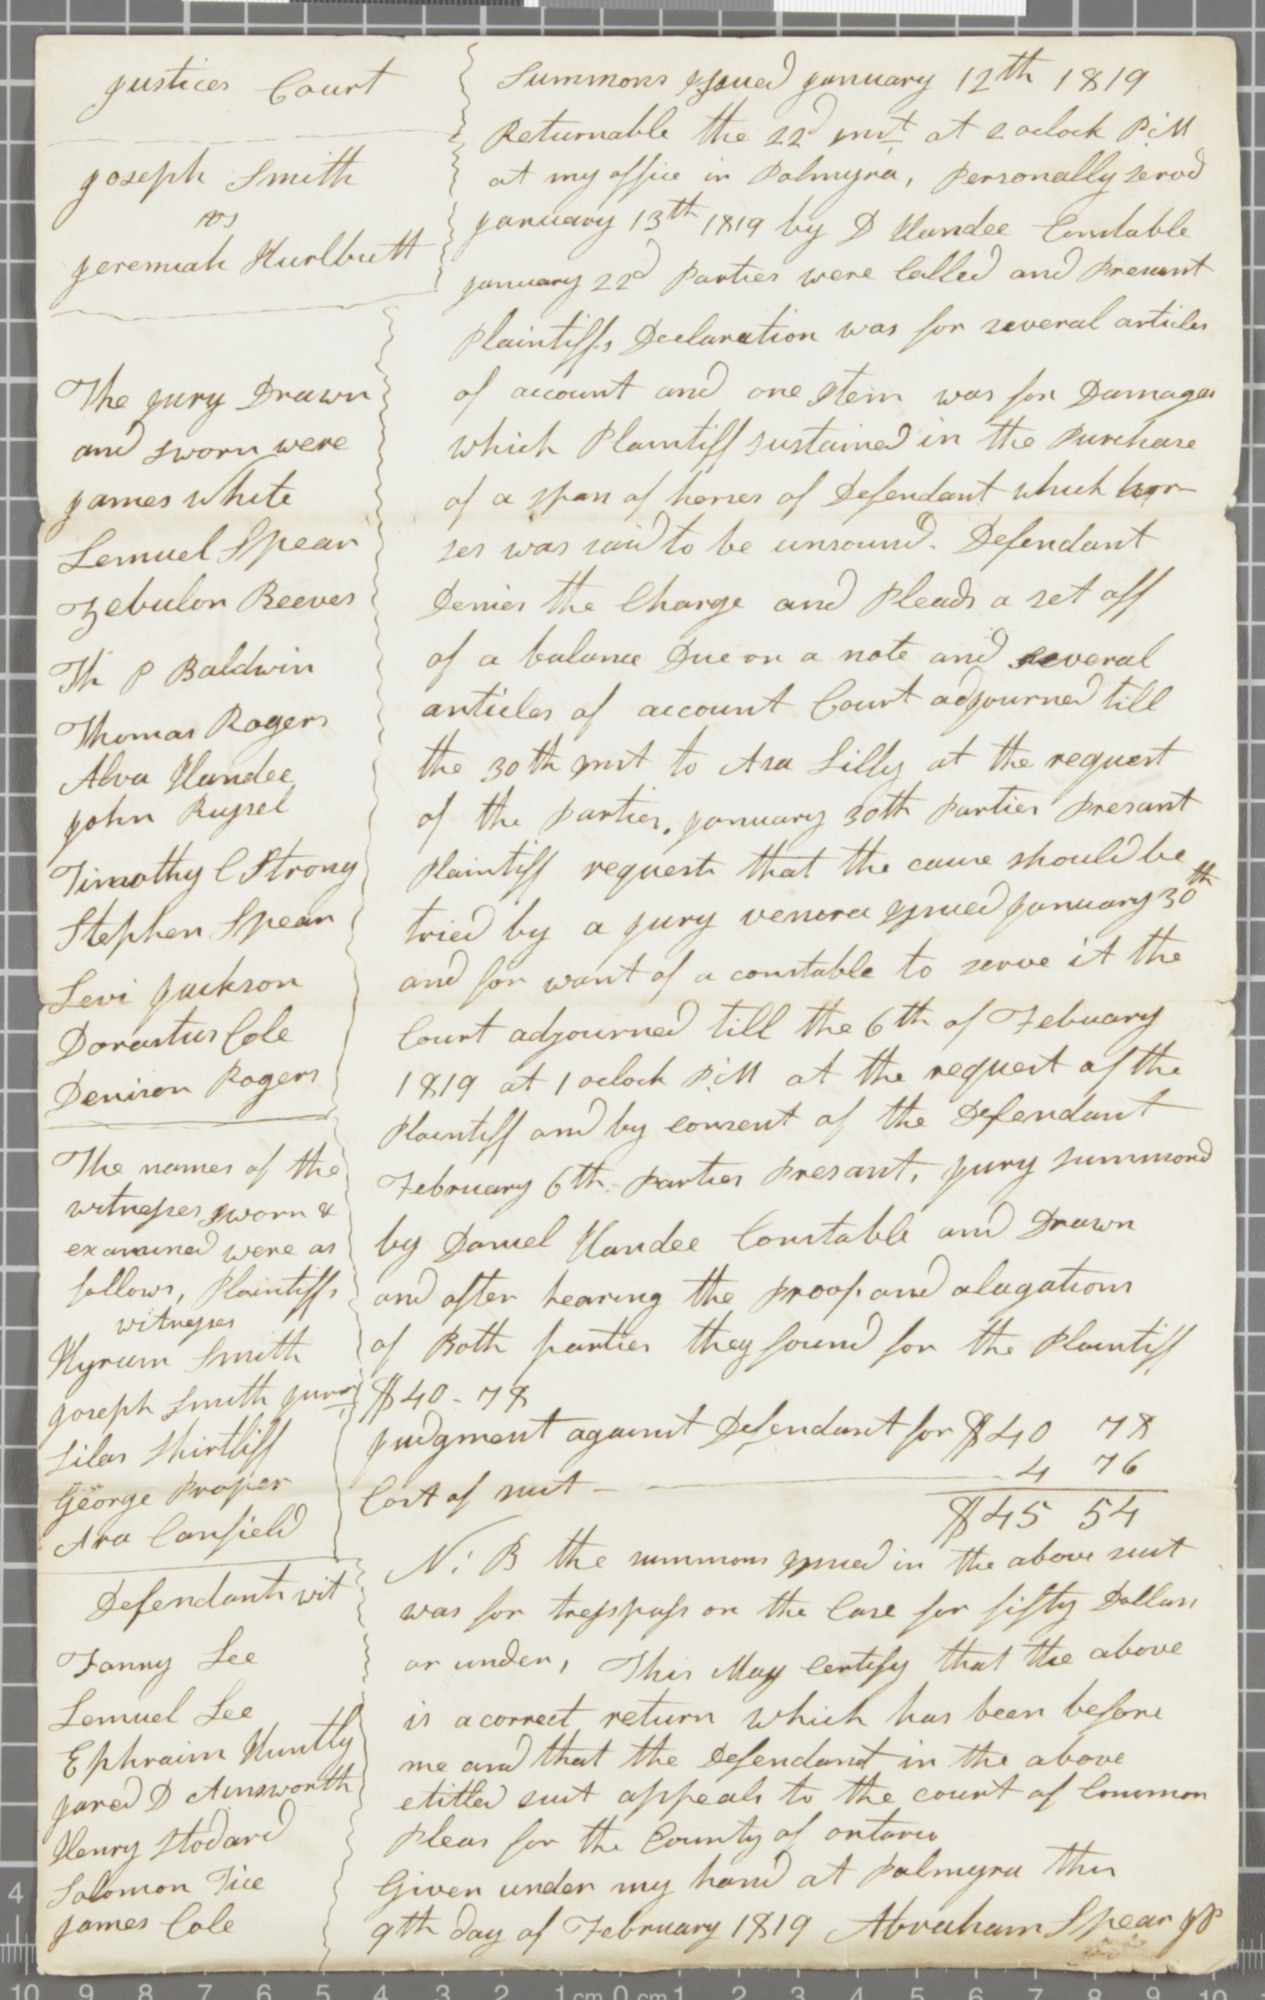 Justices Court
Joseph Smith
vs
Jeremiah Hurlbutt
The jury Drawn
and sworn were
James White
Lemuel Spear
Zebulon Reeves
Th P Baldwin
Thomas Rogers
Alva Handee
John Russel
Timothy C Strong
Stephen Spear
Levi Jackson
Dorastus Cole
Denison Rogers
The names of the
witnesses sworn &
examined were as
follows, Plaintiffs
witnesses
Hyrum Smith
Joseph Smith Junor
Silas Shirtliff
George Proper
Asa Canfield
Defendants wit
Fanny Lee
Lemuel Lee
Ephraim Huntly
Jared D Ainsworth
Henry Stodard
Solomon Tice
James Cole
Summons Issued January 12th 1819
Returnable the 22d Inst at 2 oclock P.M
at my office in Palmyra, Personally servd
January 13th 1819 by D Handee Constable
January 22d Parties were Called and Present
Plaintiffs Declaration was for several articles
of account and one Item was for Damages
which Plaintiff sustained in the Purchase
of a span of horses of Defendant which hor-
ses was said to be unsound. Defendant
Denies the Charge and Pleads a set off
of a balance Due on a note and several
articles of account Court adjourned till
the 30th Inst to Asa Lilly at the request
of the Parties. January 30th Parties Presant
Plaintiff requests that the cause should be
tried by a jury venira Issued January 30th
and for want of a constable to serve it the
Court adjourned till the 6th of Febuary
1819 at 1 oclock P.M at the request of the
Plaintiff and by consent of the Defendant
February 6th Parties Presant, Jury summond
by Daniel Handee Constable and Drawn
and after hearing the Proofs and alagations
of Both parties they found for the Plaintiff
$40-78
Judgment against Defendant for $40 78
Cost of suit - 4 76
$45 54
N.B the summons Issued in the above suit
was for tresspass on the Case for fifty Dollars
or under, This May Certify that the above
is a correct return which has been before
me and that the Defendant in the above
etitled suit appeals to the court of Common
Pleas for the County of ontario
Given under my hand at Palmyra this
9th day of February 1819 Abraham Spear JP
4
10 9 8 7 6 5 4 3 2 1 cm 0 cm 1 2 3 4 5 6 7 8 9 10